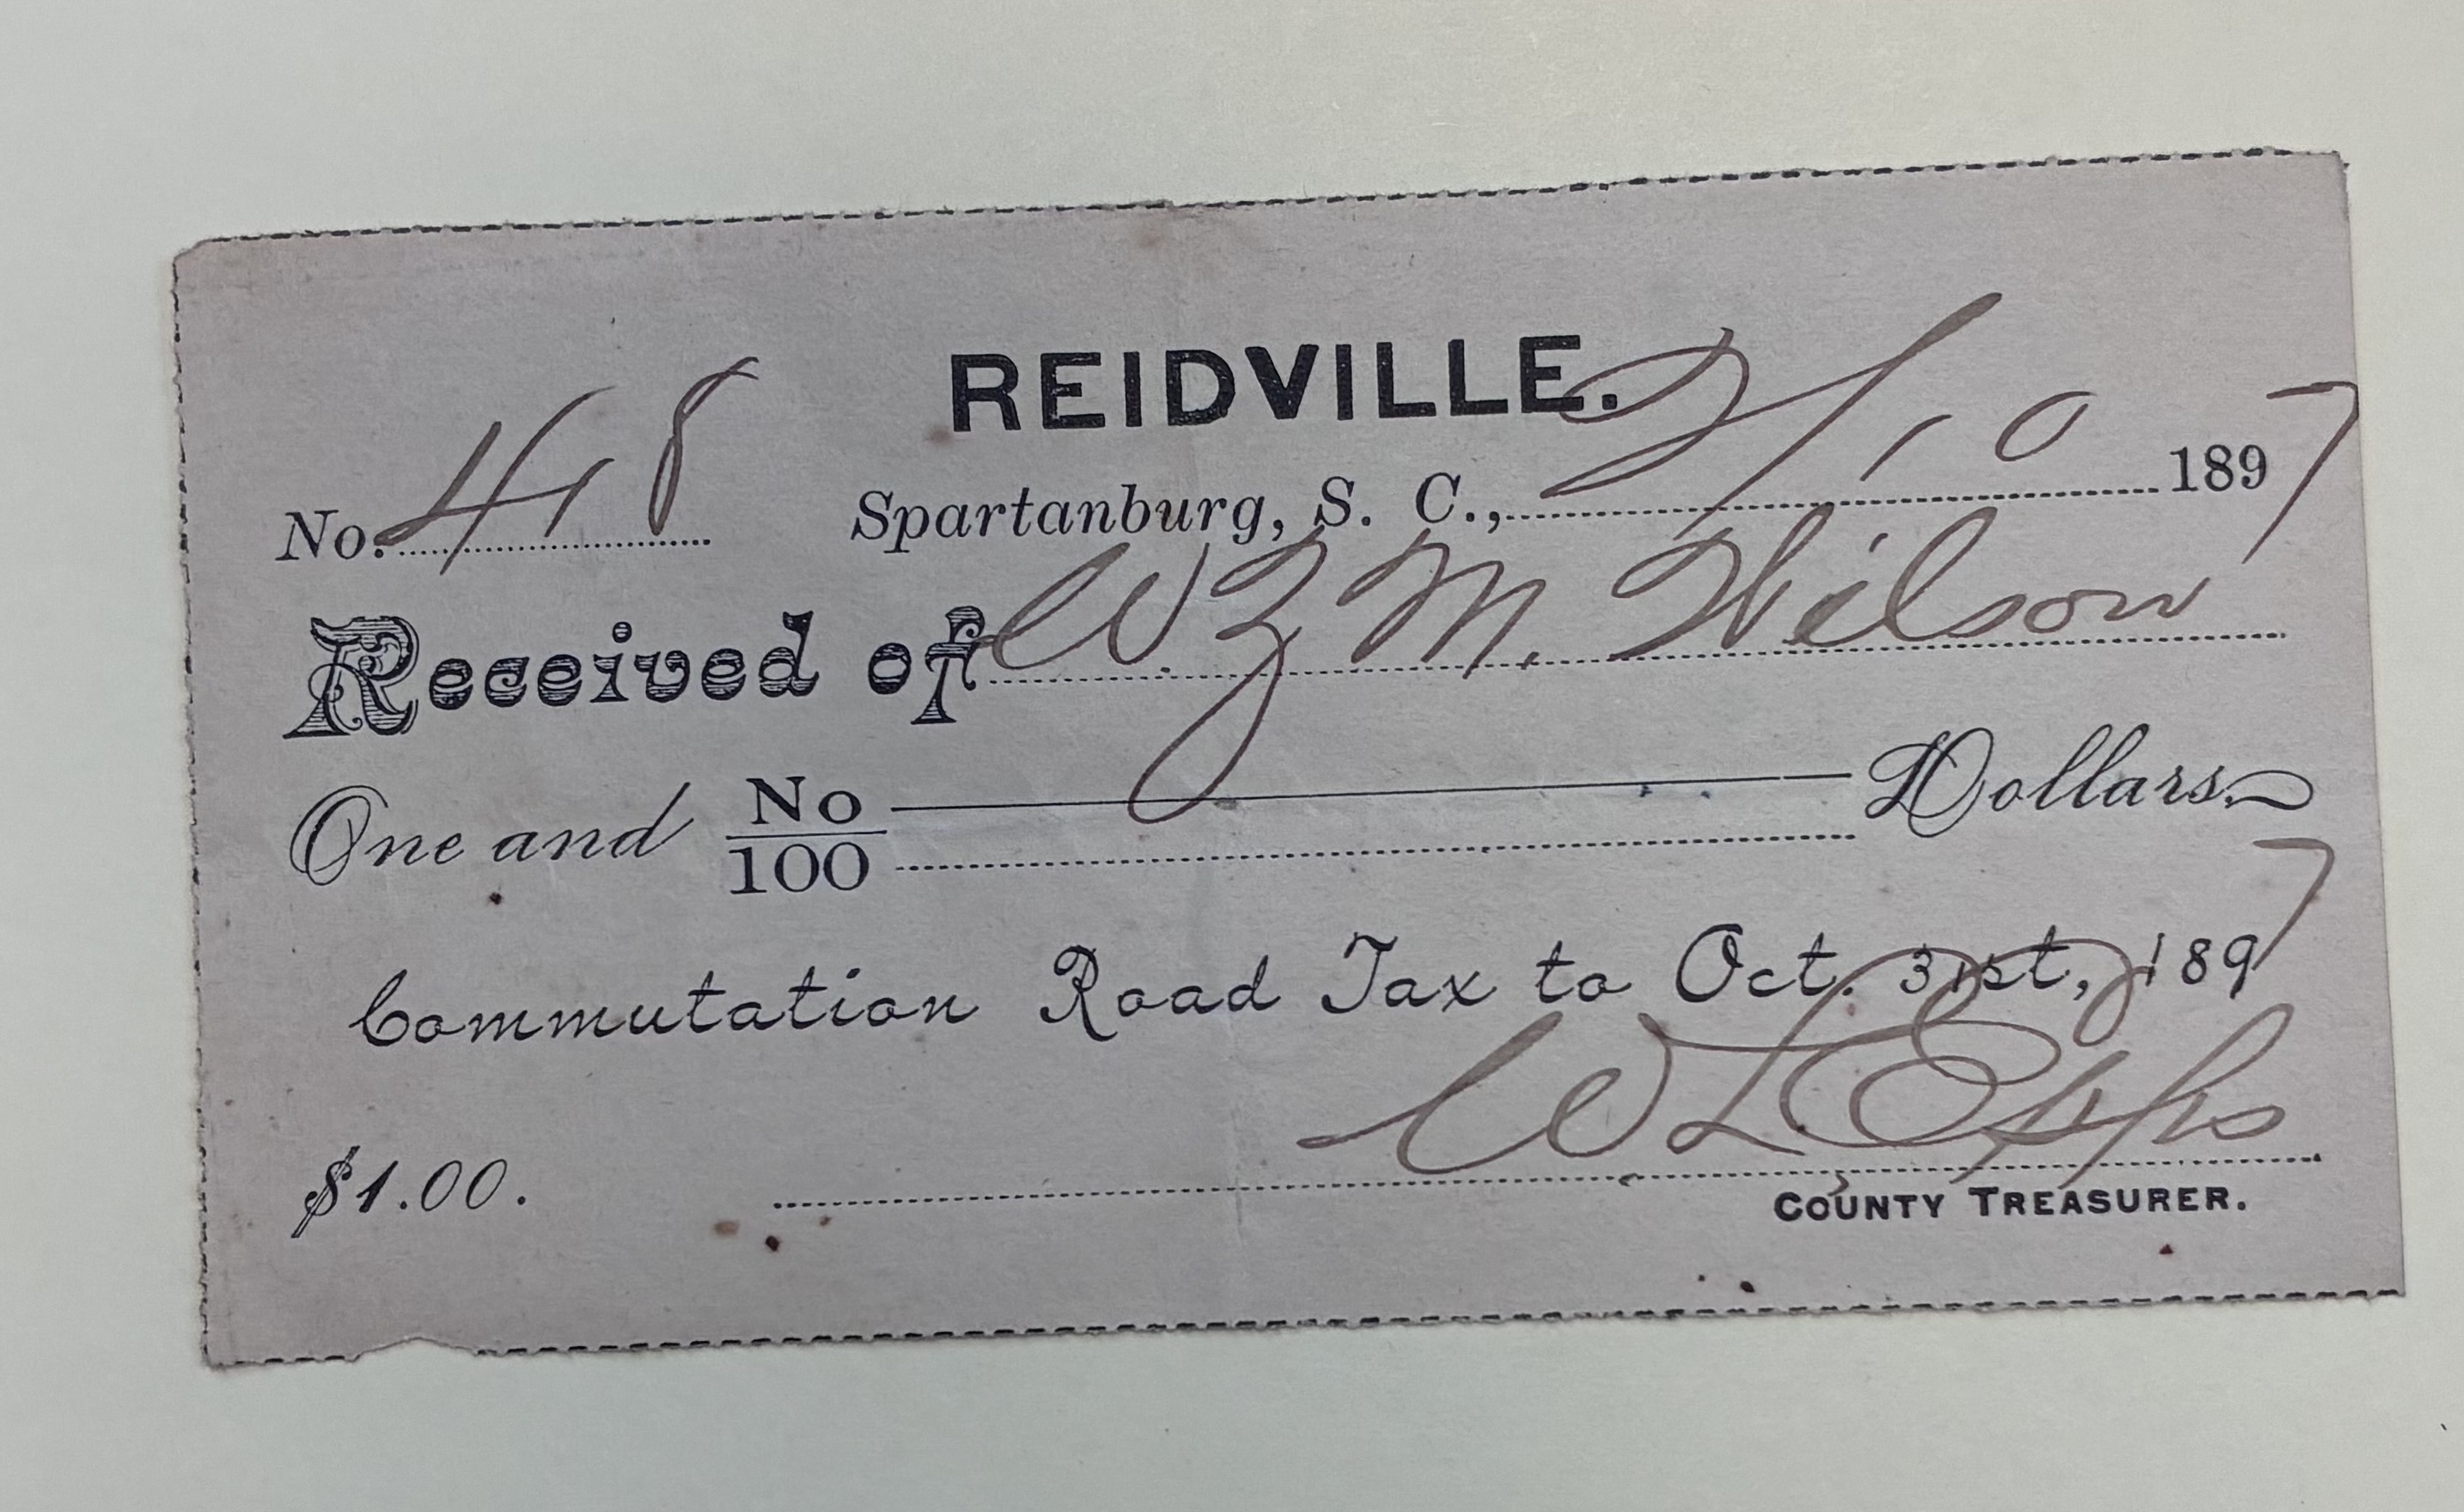 REIDVILLE.
No. 418 Spartanburg, S. C., 2/10 1897
Received of W. Z. M. Wilson
One and No/100 Dollars.
Commutation Road Tax to Oct. 31st, 1897
W L Epps
$1.00.
COUNTY TREASURER.